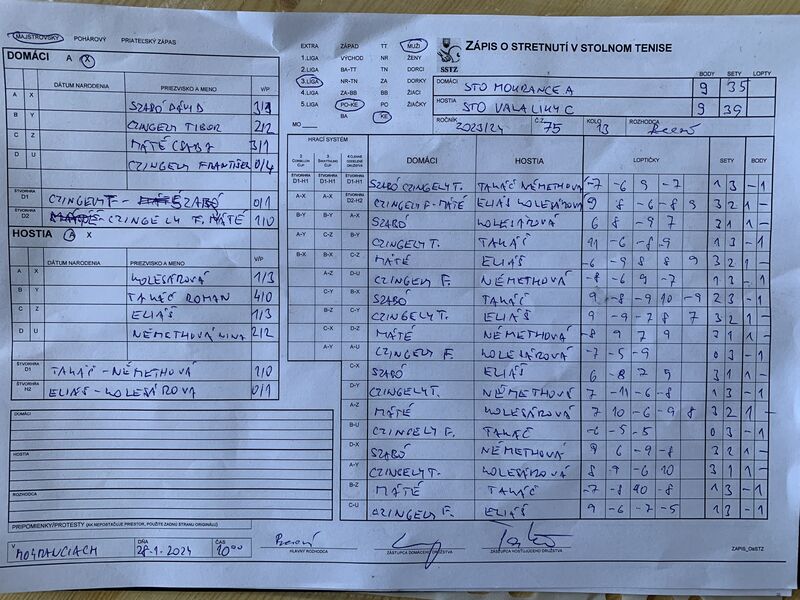 MAJSTROVSKÝ POHÁROVÝ PRIATEĽSKÝ ZÁPAS
DOMÁCI A X
DÁTUM NARODENIA PRIEZVISKO A MENO V/P
A X SZABÓ DÁVID 3/1
B Y CZINGELY TIBOR 2/2
C Z MÁTÉ CSABA 3/1
D U CZINGELY FRANTIŠEK 0/4
ŠTVORHRA D1 CZINGELY T - SZABÓ 0/1
ŠTVORHRA D2 CZINGELY F. MÁTÉ 1/0
HOSTIA A X
DÁTUM NARODENIA PRIEZVISKO A MENO V/P
A X KOLESÁROVÁ 1/3
B Y TAKÁČ ROMAN 4/0
C Z ELIÁŠ 1/3
D U NÉMETHOVÁ NINA 2/2
ŠTVORHRA D1 TAKÁČ - NÉMETHOVÁ 1/0
ŠTVORHRA H2 ELIÁŠ - KOLESÁROVÁ 0/1
DOMÁCI
HOSTIA
ROZHODCA
PRIPOMIENKY/PROTESTY (AK NEPOSTAČUJE PRIESTOR, POUŽITE ZADNÚ STRANU ORIGINÁLU)
V MOKRANCIACH DŇA 28.1.2024 ČAS 10:00
EXTRA ZÁPAD TT MUŽI
1.LIGA VÝCHOD NR ŽENY
2.LIGA BA-TT TN DORCI
3.LIGA NR-TN ZA DORKY
4.LIGA ZA-BB BB ŽIACI
5.LIGA PO-KE PO ŽIAČKY
MO BA KE
SSTZ
ZÁPIS O STRETNUTÍ V STOLNOM TENISE
BODY SETY LOPTY
DOMÁCI STO MOKRANCE A 9 35
HOSTIA STO VALALIKY C 9 39
ROČNÍK 2023/24 Č.Z. 75 KOLO 13 ROZHODCA
HRACÍ SYSTÉM
DOMÁCI HOSTIA LOPTIČKY SETY BODY
D1-H1 D1-H1 ŠTVORHRA D1-H1 SZABÓ CZINGELY T. TAKÁČ NÉMETHOVÁ -7 -6 9 -7 1 3 - 1
A-X A-X ŠTVORHRA D2-H2 CZINGELY F - MÁTÉ ELIÁŠ KOLESÁROVÁ 9 8 -6 -8 9 3 2 1 -
B-Y B-Y A-X SZABÓ KOLESÁROVÁ 6 8 -9 7 3 1 1 -
A-Y C-Z B-Y CZINGELY T. TAKÁČ 11 -6 -8 -9 1 3 - 1
B-X B-X C-Z MÁTÉ ELIÁŠ -6 -9 8 8 9 3 2 1 -
A-Z D-U CZINGELY F. NÉMETHOVÁ -8 -6 9 -7 1 3 - 1
C-Y B-X SZABÓ TAKÁČ 9 -8 -9 10 -9 2 3 - 1
B-Z C-Y CZINGELY T. ELIÁŠ 9 -9 -7 8 7 3 2 1 -
C-X D-Z MÁTÉ NÉMETHOVÁ -8 9 7 9 3 1 1 -
A-Y A-U CZINGELY F. KOLESÁROVÁ -7 -5 -9 0 3 - 1
C-X SZABÓ ELIÁŠ 6 -8 7 9 3 1 1 -
D-Y CZINGELY T. NÉMETHOVÁ 7 -11 -6 -8 1 3 - 1
A-Z MÁTÉ KOLESÁROVÁ 7 10 -6 -9 8 3 2 1 -
B-U CZINGELY F. TAKÁČ -6 -5 -5 0 3 - 1
D-X SZABÓ NÉMETHOVÁ 9 6 -9 -8 3 2 1 -
A-Y CZINGELY T. KOLESÁROVÁ 8 9 -6 10 3 1 1 -
B-Z MÁTÉ TAKÁČ -7 -8 10 -8 1 3 - 1
C-U CZINGELY F. ELIÁŠ 9 -6 -7 -5 1 3 - 1
HLAVNÝ ROZHODCA ZÁSTUPCA DOMÁCEHO DRUŽSTVA ZÁSTUPCA HOSŤUJÚCEHO DRUŽSTVA
ZAPIS_OsSTZ